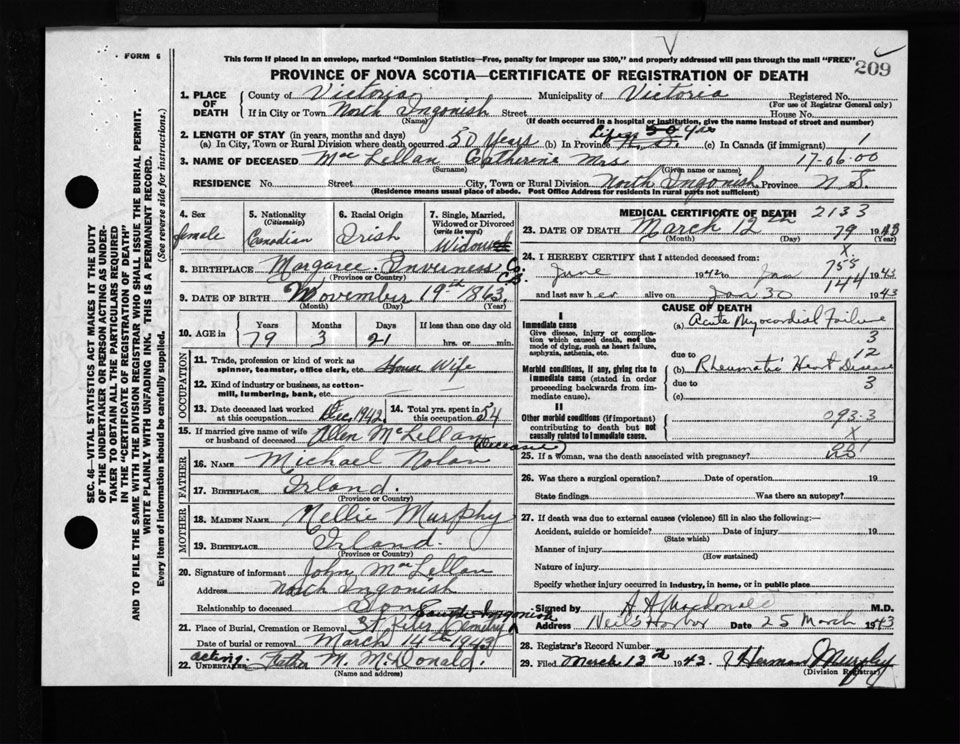 FORM 6
This form if placed in an envelope, marked "Dominion Statistics—Free, penalty for improper use $300," and properly addressed will pass through the mail "FREE"
209
PROVINCE OF NOVA SCOTIA—CERTIFICATE OF REGISTRATION OF DEATH
SEC. 46—VITAL STATISTICS ACT MAKES IT THE DUTY
OF THE UNDERTAKER OR PERSON ACTING AS UNDER-
TAKER TO OBTAIN ALL THE PARTICULARS REQUIRED
IN THE "CERTIFICATE OF REGISTRATION OF DEATH"
AND TO FILE THE SAME WITH THE DIVISION REGISTRAR WHO SHALL ISSUE THE BURIAL PERMIT.
WRITE PLAINLY WITH UNFADING INK. THIS IS A PERMANENT RECORD.
Every item of information should be carefully supplied. (See reverse side for instructions.)
1. PLACE OF DEATH
County of Victoria Municipality of Victoria Registered No.
(For use of Registrar General only)
If in City or Town North Ingonish Street House No.
(Name) (If death occurred in a hospital or institution, give the name instead of street and number)
2. LENGTH OF STAY (in years, months and days)
(a) In City, Town or Rural Division where death occurred 50 Years (b) In Province Life 50 yrs N.S. (c) In Canada (if immigrant) 1
3. NAME OF DECEASED Mac Lellan Catherine Mrs 17-06-00
(Surname) (Given name or names)
RESIDENCE No. Street City, Town or Rural Division North Ingonish Province N S.
(Residence means usual place of abode. Post Office Address for residents in rural parts not sufficient)
4. Sex female
5. Nationality (Citizenship) Canadian
6. Racial Origin Irish
7. Single, Married, Widowed or Divorced (write the word) Widow
8. BIRTHPLACE Margaree. Inverness Co. C.B.
(Province or Country)
9. DATE OF BIRTH November 19th 1863.
(Month) (Day) (Year)
10. AGE in Years 79 Months 3 Days 21 If less than one day old hrs. or min.
OCCUPATION
11. Trade, profession or kind of work as spinner, teamster, office clerk, etc. House Wife
12. Kind of industry or business, as cotton-mill, lumbering, bank, etc.
13. Date deceased last worked at this occupation Dec, 1942.
14. Total yrs. spent in this occupation 54
15. If married give name of wife or husband of deceased Allen McLellan (Deceased)
FATHER
16. NAME Michael Nolan
17. BIRTHPLACE Irland.
(Province or Country)
MOTHER
18. MAIDEN NAME Nellie Murphy
19. BIRTHPLACE Irland.
(Province or Country)
20. Signature of informant John MacLellan
Address North Ingonish
Relationship to deceased Son
South Ingonish
21. Place of Burial, Cremation or Removal St. Peters Cemetry
Date of burial or removal March 14th 1943
22. acting UNDERTAKER Father M. McDonald.
(Name and address)
MEDICAL CERTIFICATE OF DEATH 2133
23. DATE OF DEATH March 12th 79 1943
(Month) (Day) (Year)
24. I HEREBY CERTIFY that I attended deceased from:
June 1942 to Jan 1943
and last saw her alive on Jan 30 1943
CAUSE OF DEATH
I
Immediate cause
Give disease, injury or complication which caused death, not the mode of dying, such as heart failure, asphyxia, asthenia, etc.
(a) Acute Myocardial Failure
3
12
Morbid conditions, if any, giving rise to immediate cause (stated in order proceeding backwards from immediate cause).
due to
(b) Rheumatic Heart Disease
due to 3
(c)
II
Other morbid conditions (if important) contributing to death but not causally related to immediate cause.
093.3
X
25. If a woman, was the death associated with pregnancy?
26. Was there a surgical operation? Date of operation 19
State findings Was there an autopsy?
27. If death was due to external causes (violence) fill in also the following:—
Accident, suicide or homicide? Date of injury 19
(State which)
Manner of injury
(How sustained)
Nature of injury
Specify whether injury occurred in industry, in home, or in public place
Signed by A A Macdonald M.D.
Address Neil's Harbor Date 25 March 1943
28. Registrar's Record Number
29. Filed March 12th 1943. Herman Murphy
(Division Registrar)